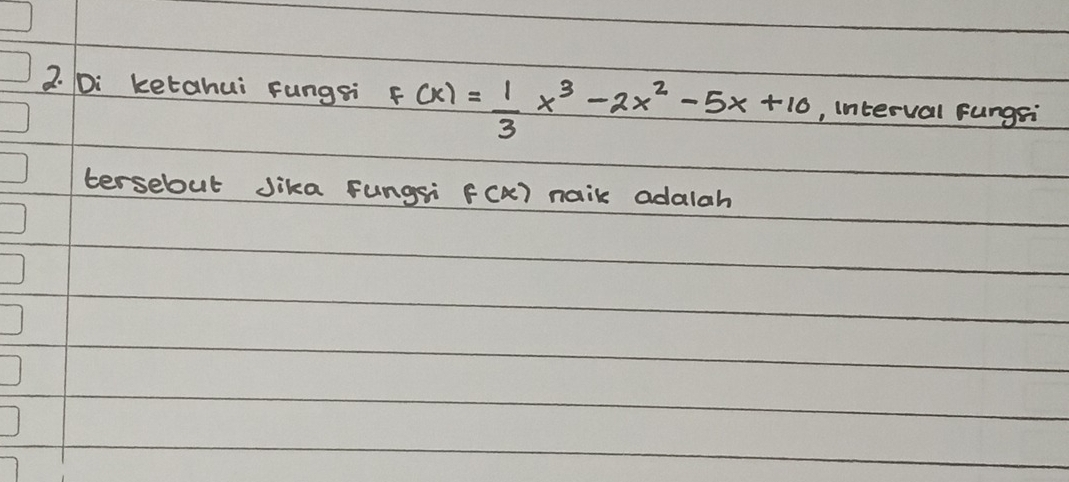 2. Di ketahui fungsi f(x) = 1/3 x³ - 2x² - 5x + 10, interval fungsi
tersebut Jika fungsi f(x) naik adalah